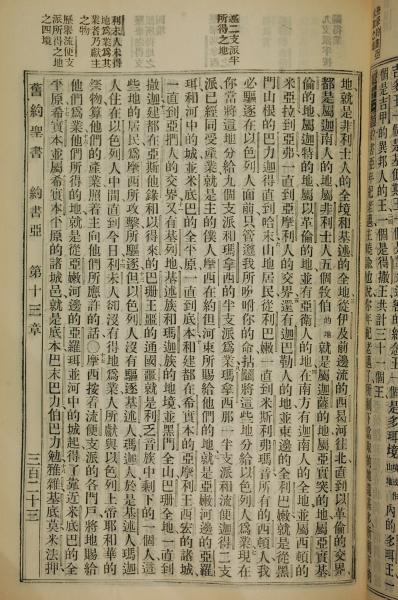 個是吉甲的異邦人的王一個是得撒王共計三十一個王
蓋二支派半
所得之地
利未人未得
地業爲其
業者乃獻主
之物
歷舉流便支
派所得之地
之四境
地就是非利士人的全境和基述的全地從伊及前邊流的西曷河往北直到以革倫的交界
都是屬迦南人的地屬非利士人五個牧伯的地就是屬迦薩的地屬亞實突的地屬亞實基
倫的地屬迦特的地屬以革倫的地並有亞衛人的地在南方有迦南人的全地並屬西頓的
米亞拉到亞弗一直到亞摩利人的交界還有迦巴勒人的地並東邊的全利巴嫩就是從黑
門山根的巴力迦得直到哈末山地居民從利巴嫩一直到米斯利弗瑪音所有的西頓人我
必驅逐在以色列人面前只管遵我所吩咐你的命拈鬮將這些地分給以色列人爲業現在
你當將這地分給九個支派和瑪拿西的半支派爲業瑪拿西那一半支派和流便迦得二支
派已經同受產業就是主的僕人摩西在約但河東所賜給他們的地就是亞嫩河邊的亞羅
珥和河中的城並米底巴的全平原一直到底本和建都在希實本的亞摩利王西宏的諸城
一直到亞捫人的交界又有基列地基述族和瑪迦族的地境並黑門全山巴珊全地一直到
撒迦建都在亞斯他錄和以得來的巴珊王噩的通國噩就是利乏音族中剩下的一個人這
些地的居民爲摩西所攻擊所驅逐但以色列人沒有驅逐基述人瑪迦人於是基述人瑪迦
人住在以色列人中間直到今日利未人卻沒有得地爲業人所獻與以色列上帝耶和華的
祭物算他們的產業照着主向他們所應許的話摩西按着流便支派的各門戶將地賜給
他們爲業他們所得的地就是從亞嫩河邊的亞羅珥並河中的城起得了靠近米底巴的全
平原希實本並屬希實本平原的諸城邑就是底本巴末巴力伯巴力勉雅雜基底莫米法押
舊約聖書 約書亞 第十三章 三百二十三